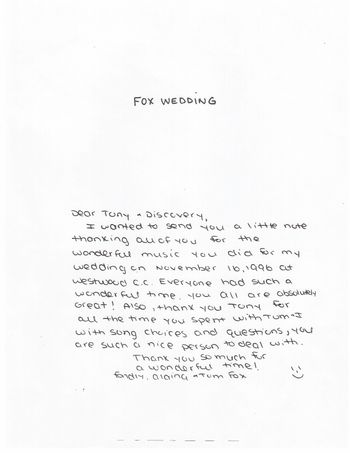 FOX WEDDING
Dear Tony + Discovery,
I wanted to send you a little note
thanking all of you for the
wonderful music you did for my
wedding on November 16, 1996 at
Westwood C.C. Everyone had such a
wonderful time. You all are absolutely
Great! Also, thank you Tony for
all the time you spent with Tom + I
with song choices and questions, you
are such a nice person to deal with.
Thank you so much for
a wonderful time!
Fondly, + Tom Fox